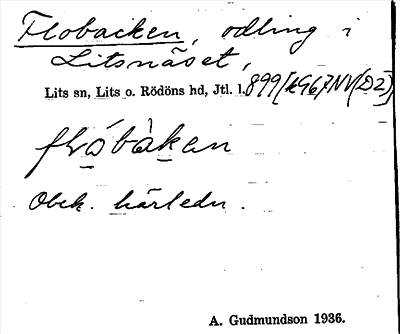 Flobacken, odling i
Litsnäset,
Lits sn, Lits o. Rödöns hd, Jtl. l. 899 [k967NV(D2)]
flóbàkan
Obek. härledn.
A. Gudmundson 1936.